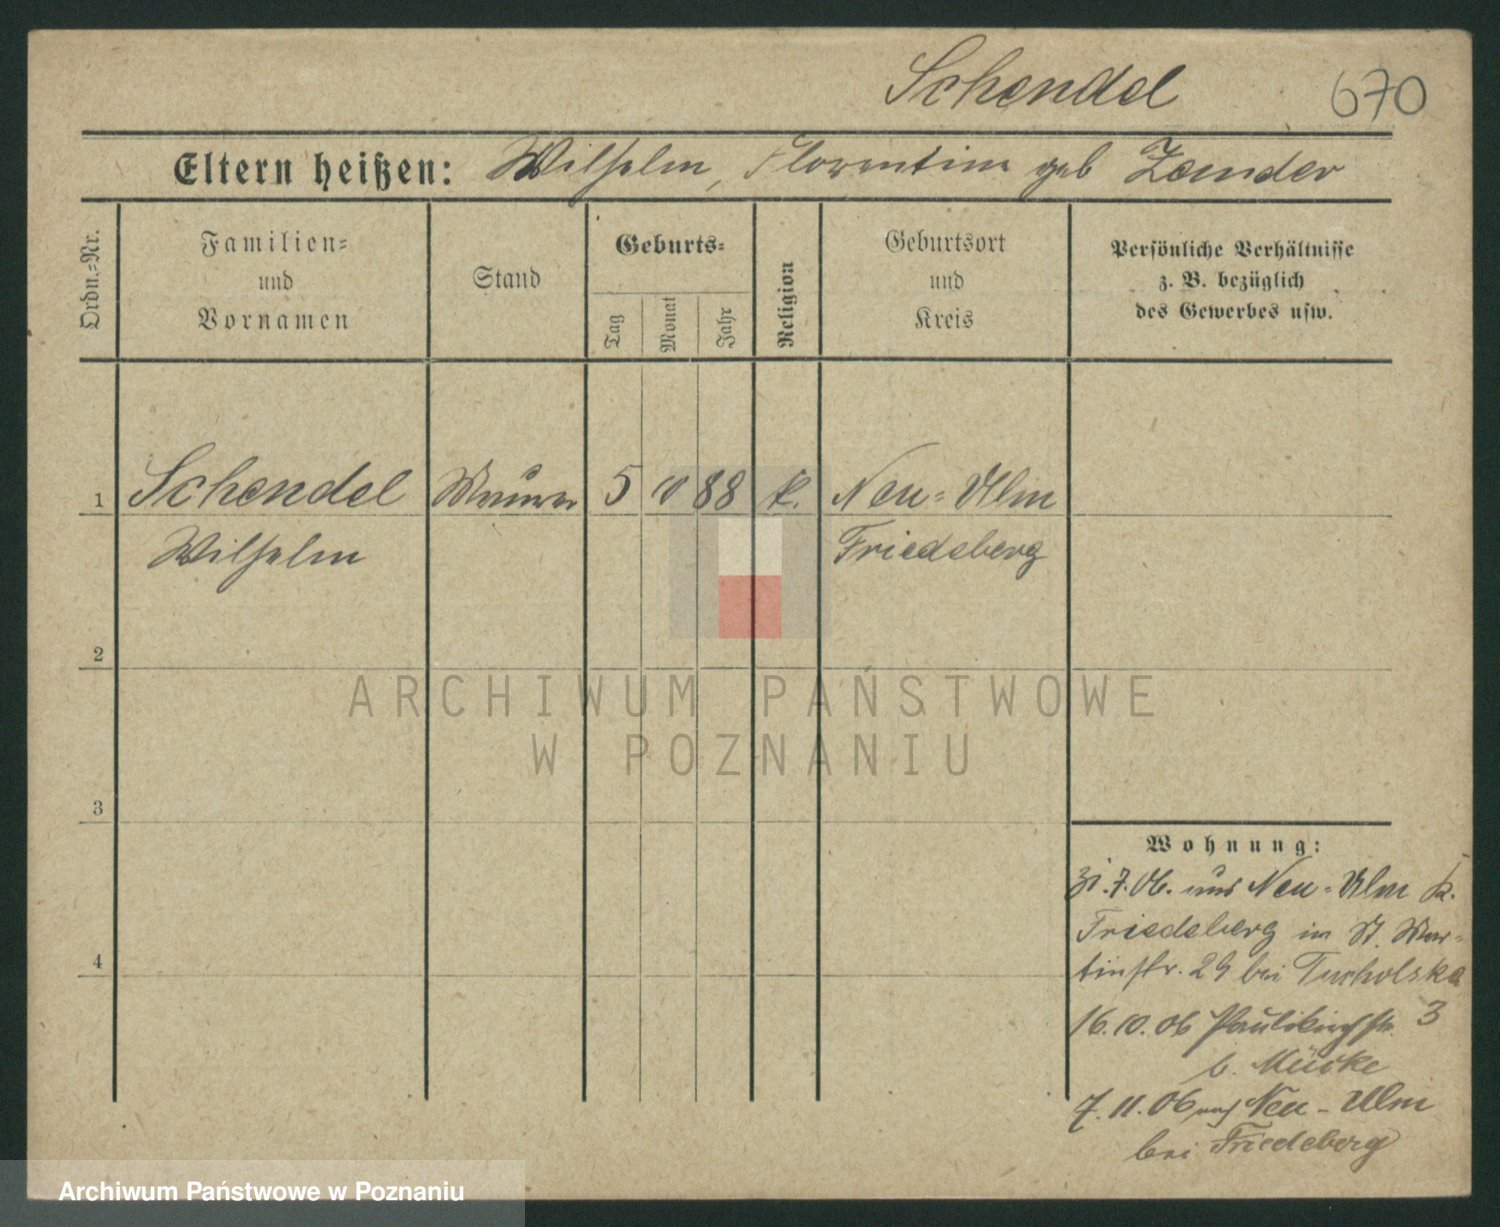 Schendel 670
Eltern heißen: Wilhelm, Florentine geb Zander
Ordn.=Nr.
Familien=
und
Vornamen
Stand
Geburts=
Tag
Monat
Jahr
Religion
Geburtsort
und
Kreis
Persönliche Verhältnisse
z. B. bezüglich
des Gewerbes usw.
1 Schendel Maurer 5 10 88 k. Neu=Ulm
Wilhelm Friedeberg
2
3
4
Wohnung:
31.7.06. aus Neu=Ulm k.
Friedeberg in St. Mar=
tinstr. 29 bei Tucholska
16.10.06 Paulikirchstr. 3
b. Mücke
7.11.06 nach Neu-Ulm
bei Friedeberg
ARCHIWUM PAŃSTWOWE
W POZNANIU
Archiwum Państwowe w Poznaniu